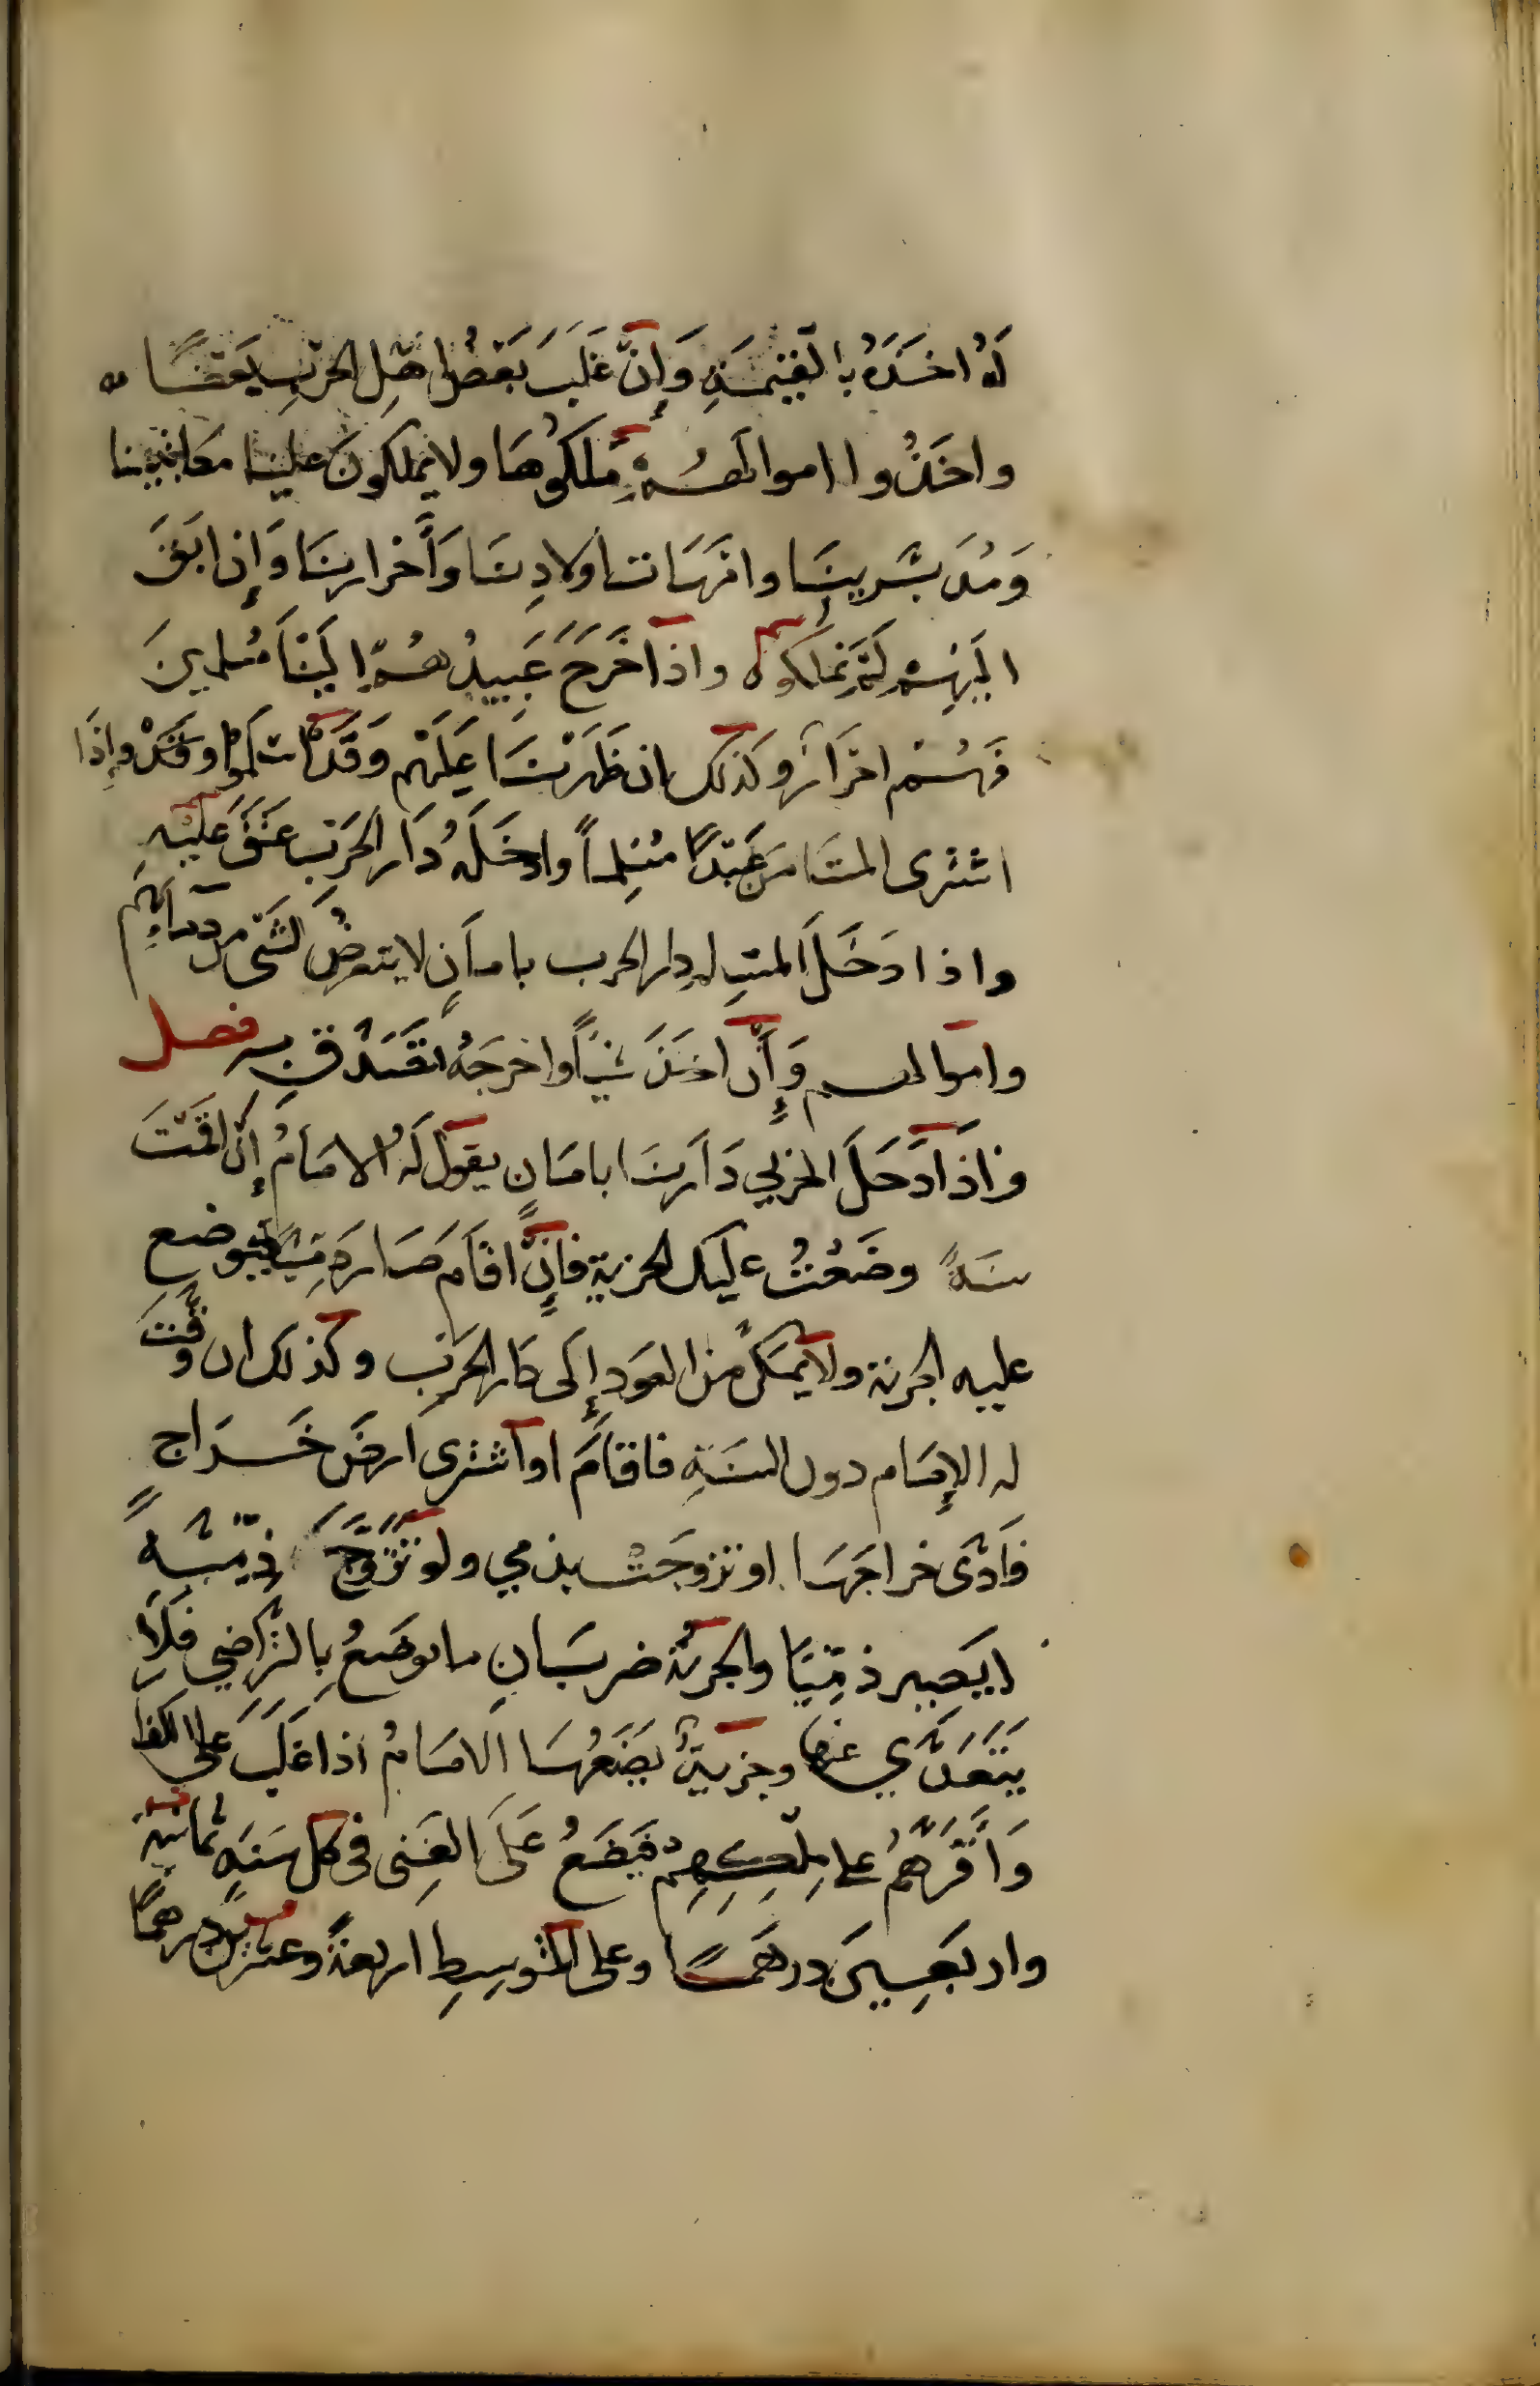 لَهُ اخَذَهُ بالقيمَةِ وَإِنْ غَلَبَ بَعْضُ اهْلِ الحَرْبِ بَعْضًا
واخَذُوا اموالهُمْ مَلَكُوهَا ولا يملكونَ علينا مكاتبينا
وَمُدَبَّرِينَا وامَّهَات اولادِنَا وَأَحْرارِنَا وَإِن ابَقَ
اليْهِمْ لَمْ يَمْلِكُوه واذا خَرَجَ عَبِيدُهُمْ إِليْنَا مُسْلمِينَ
فَهُمْ احْرَارٌ وكَذلك ان ظَهَرْنَا عَلَيْهِم وَقَدْ اسْلَمُوا وإِذَا
اشترى المستَامِن عَبْدًا مُسْلِماً وادخَلَهُ دَارَ الحَرْبِ عَتَقَ عَلَيْهِ
واذا دَخَلَ المسلِم دار الحرب بامَانٍ لا يتعرضُ لشَىْ من دمَائِهِم
واموالهم وَإِنْ اخَذَ شَيْأً واخرجَهُ تصَدقَ بِهِ فصل
وَاذا دَخَلَ الحربي دَارَنَا بامَانٍ يقول لَهُ الامَامُ إِنْ اقَمْتَ
سَنَةً وضَعْتُ عليك الجزية فَإِنْ اقَام صَارَ ذِمِّيًّا فتوضع
عليه الجزية ولا يُمَكَّنُ من العَودِ إِلَى دار الحَرْبِ وكذلك ان وَقَّتَ
له الإمَام دون السَنَةِ فاقَامَ او اشترى ارضَ خَرَاج
فَأَدَّى خراجَهَا او تزوجَتْ بذمي ولو تَزَوَّجَ ذِمِّيَّةً
لا يَصِير ذمِّيًّا والجزيةُ ضربَانِ ما يوضَعُ بِالتَّرَاضِي فَلَا
يَتَعَدَّي عنها وجزيةٌ يضَعُهَا الامَامُ اذا غَلَبَ عَلَى الكفار
وَأَقَرَّهُمْ على مِلْكِهِمْ فيَضَعُ عَلَى الغَنِى فى كل سَنَةٍ ثمانيَةً
واربَعِينَ درهَمًا وعلى المتوسِطِ اربعةً وعشرين دِرهمًا